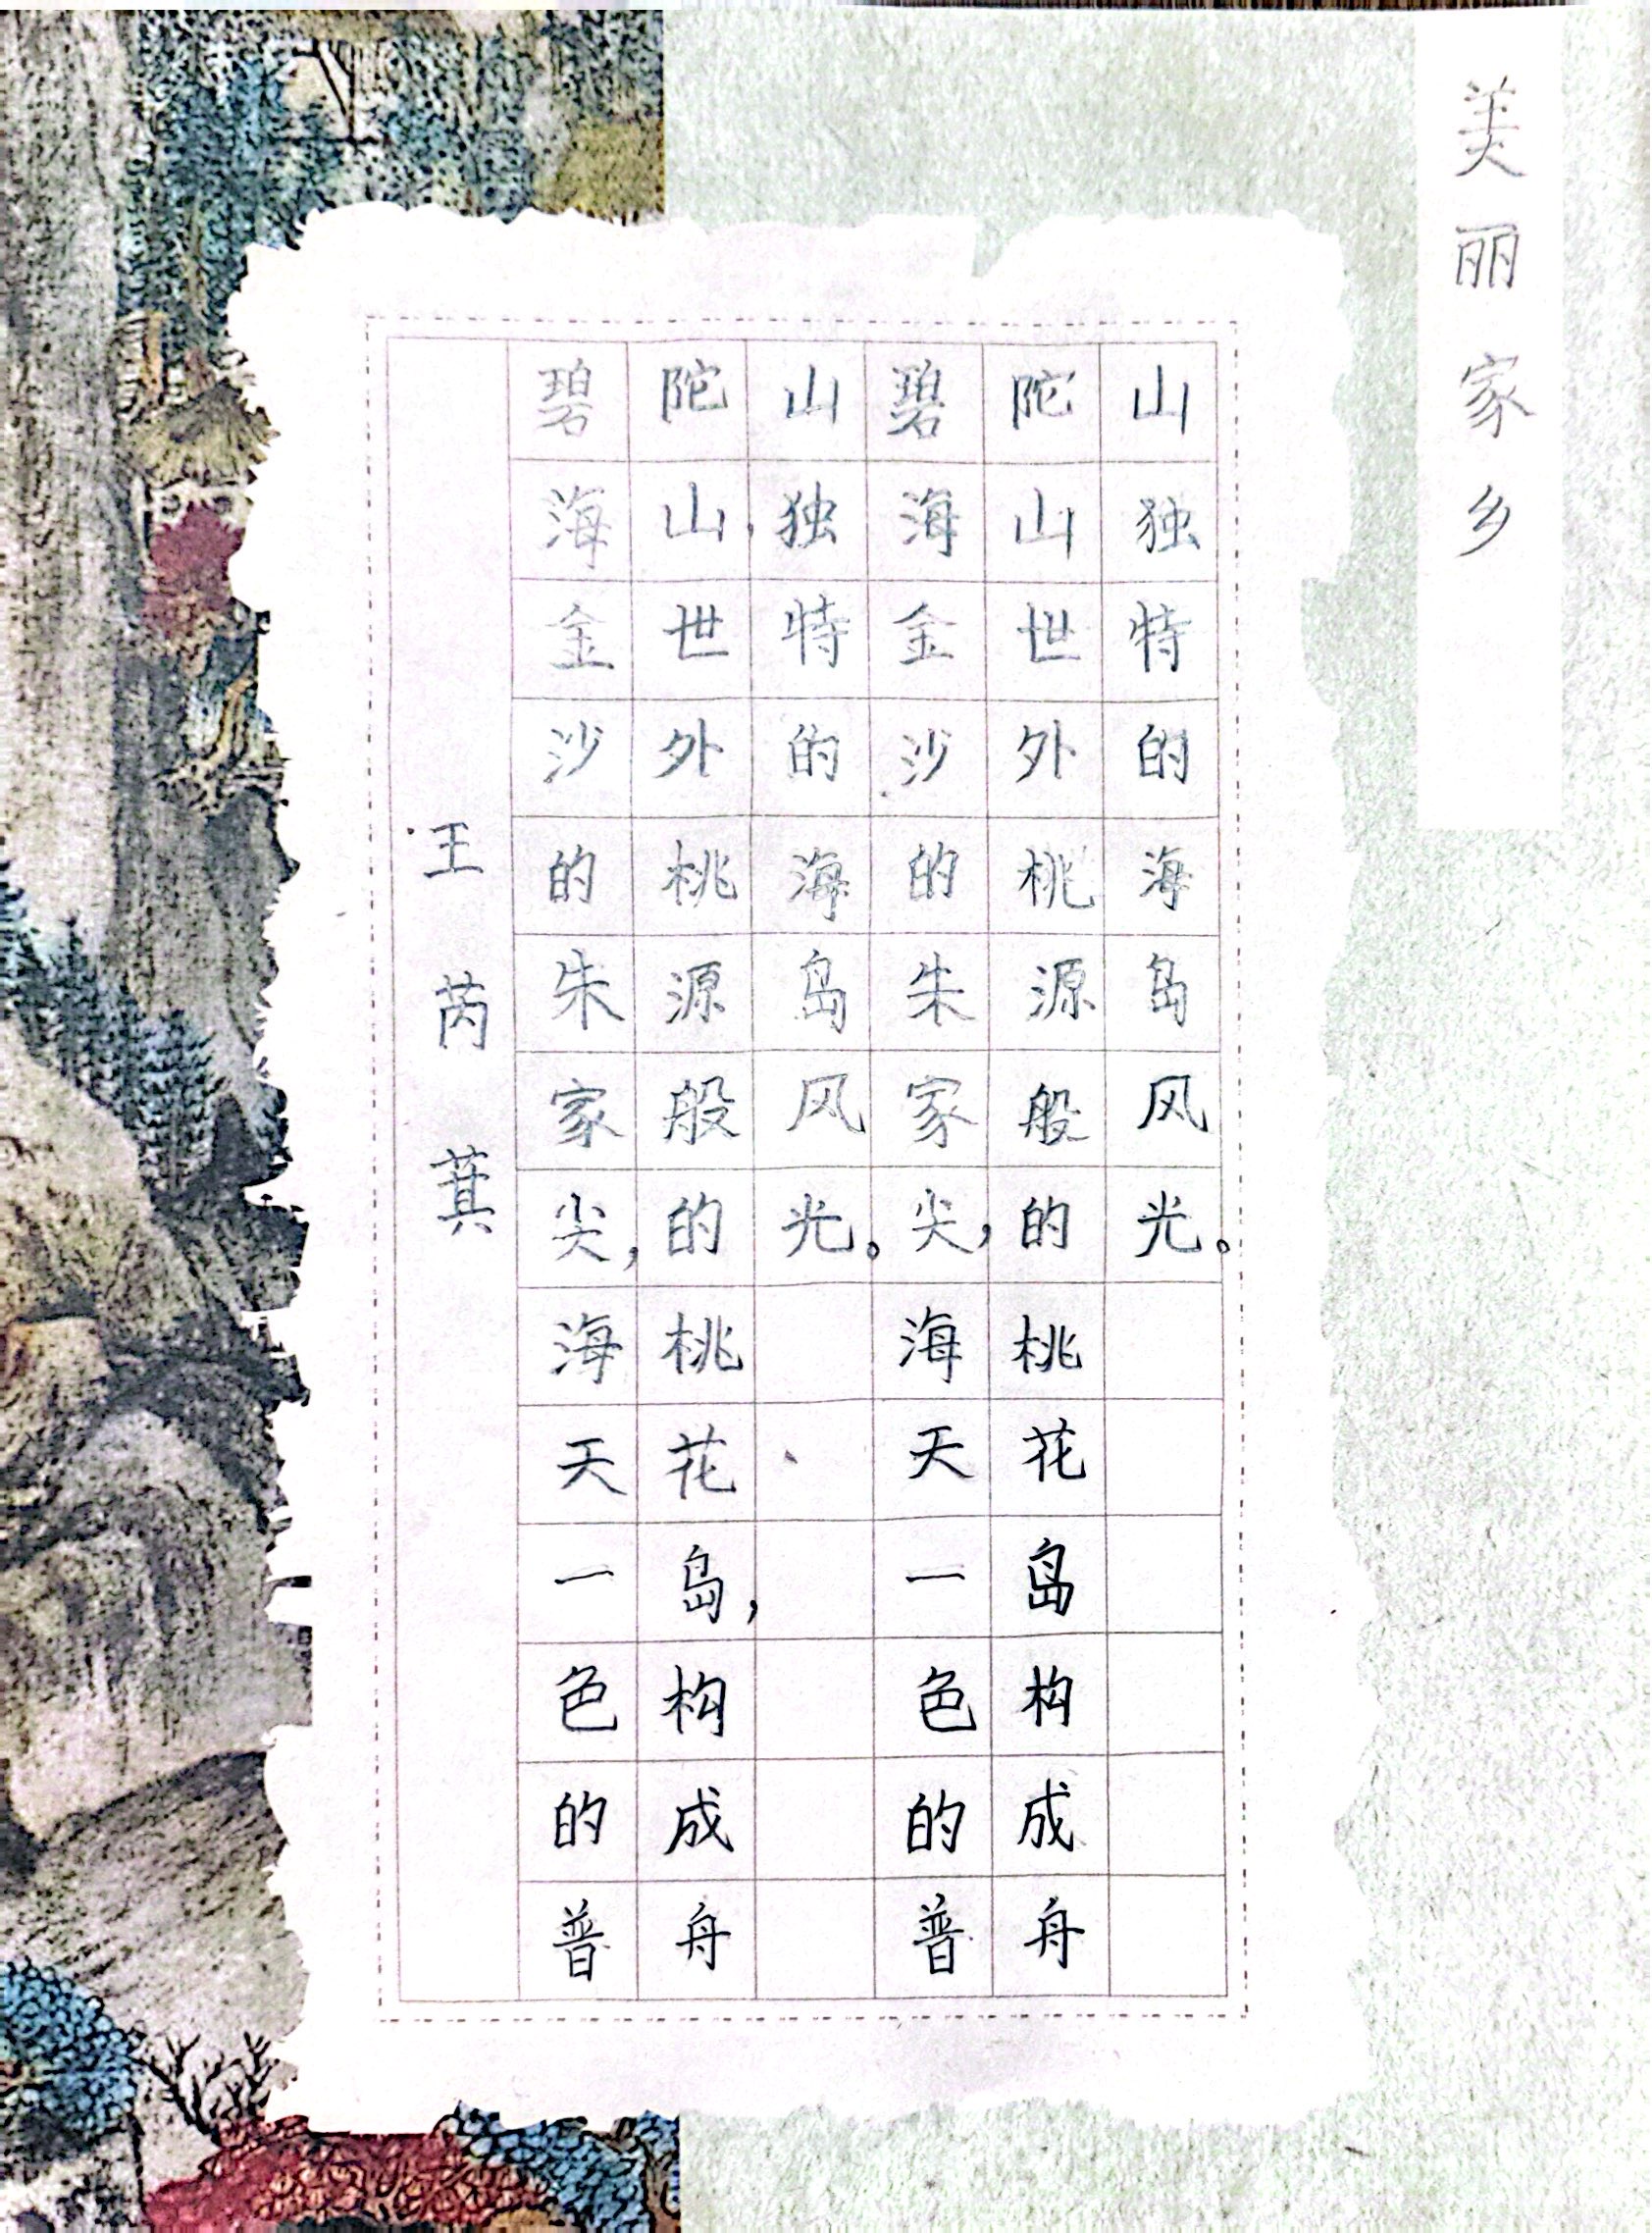 美丽家乡
碧海金沙的朱家尖，海天一色的普
陀山，世外桃源般的桃花岛，构成舟
山独特的海岛风光。
碧海金沙的朱家尖，海天一色的普
陀山世外桃源般的桃花岛构成舟
山独特的海岛风光。
王芮萁